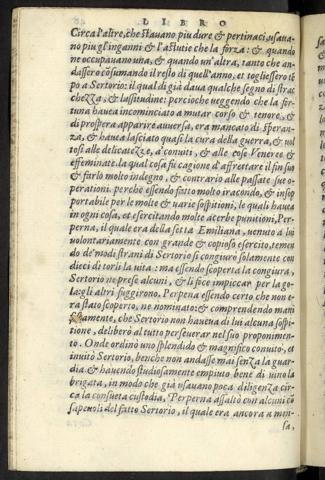 LIBRO
Circa l'altre, che stauano piu dure & pertinaci, usaua-
no piu gl'inganni & l'astutie che la forza: & quando
ne occupauano una, & quando un'altra, tanto che an-
dassero cōsumando il resto di quell'anno, et togliessero tē
po a Sertorio: il qual di già daua qualche segno di strac
chezza, & lassitudine: percioche ueggendo che la for-
tuna haueua incominciato a mutar corso & tenore, &
di prospera apparire auuersa, era mancato di speran-
za, & haueua lasciato quasi la cura della guerra, & uol
tosi alle delicatezze, a' conuiti, & alle cose Veneree &
effeminate. la qual cosa fu cagione d'affrettare il fin suo
& farlo molto indegno, & contrario alle passate sue o-
perationi. perche essendo fatto molto iracondo, & inso
portabile per le molte & uarie sospitioni, le quali haueua
in ogni cosa, et esercitando molte acerbe punitioni, Per-
perna, il quale era della setta Emiliana, uenuto a lui
uolontariamente con grande & copioso esercito, temen
do de' modi strani di Sertorio si congiurò solamente con
dieci di torli la uita: ma essendo scoperta la congiura,
Sertorio ne prese alcuni, & li fece impiccar per la go-
la: gli altri fuggirono. Perpena essendo certo che non e-
ra stato scoperto, ne nominato: & comprendendo mani
festamente, che Sertorio non haueua di lui alcuna sospi-
tione, deliberò al tutto perseuerar nel suo proponimen-
to. Onde ordinò uno splendido & magnifico conuito, et
inuitò Sertorio, benche non andasse mai senza la guar-
dia. & hauendo studiosamente empiuto bene di uino la
brigata, in modo che già usauano poca diligenza cir-
ca la consueta custodia, Perperna assaltò con alcuni cō
sapeuoli del fatto Sertorio, il quale era ancora a men-
sa,